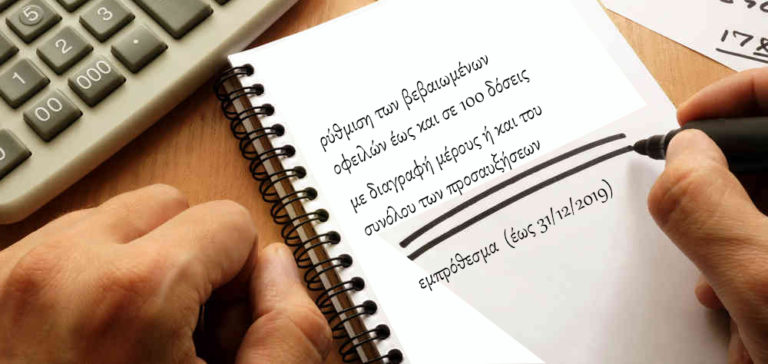 ρύθμιση των βεβαιωμένων
οφειλών έως και σε 100 δόσεις
με διαγραφή μέρους ή και του
συνόλου των προσαυξήσεων
εμπρόθεσμα (έως 31/12/2019)
5
2
3
1
00
000
0
178